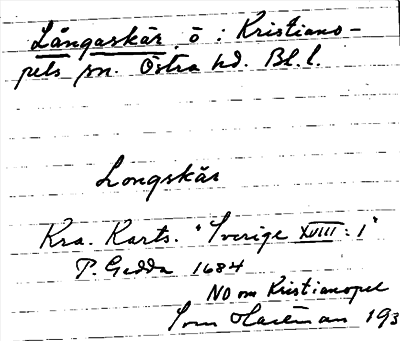 Långaskär, ö : Kristiano-
pels sn. Östra hd. Bl. l.
Longskär
Kra. Karts. "Sverige XVIII : 1"
P. Gedda 1684
NO om Kristianopel
193